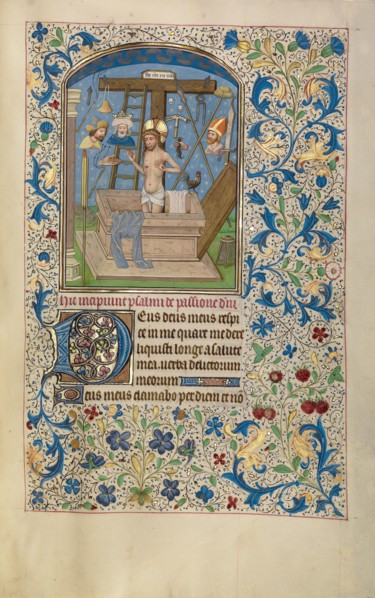 Hic incipiunt psalmi de passione dni
DEus deus meus respi
ce in me quare me dere
liquisti longe a salute
mea verba delictorum
meorum
Deus meus clamabo per diem et no